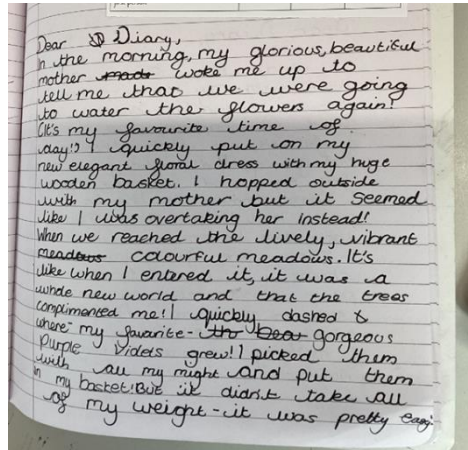 Dear Diary,
In the morning, my glorious, beautiful
mother made woke me up to
tell me that we were going
to water the flowers again!
(It's my favourite time of
day!) I quickly put on my
new elegant floral dress with my huge
wooden basket. I hopped outside
with my mother but it seemed
like I was overtaking her instead!
When we reached the lively, vibrant
meadows colourful meadows. It's
like when I entered it, it was a
whole new world and that the trees
complimented me! I quickly dashed to
where- my favarite- the gorgeous
Purple Violets grew! I picked them
with all my might and put them
in my basket! But it didn't take all
of my weight - it was pretty easy.